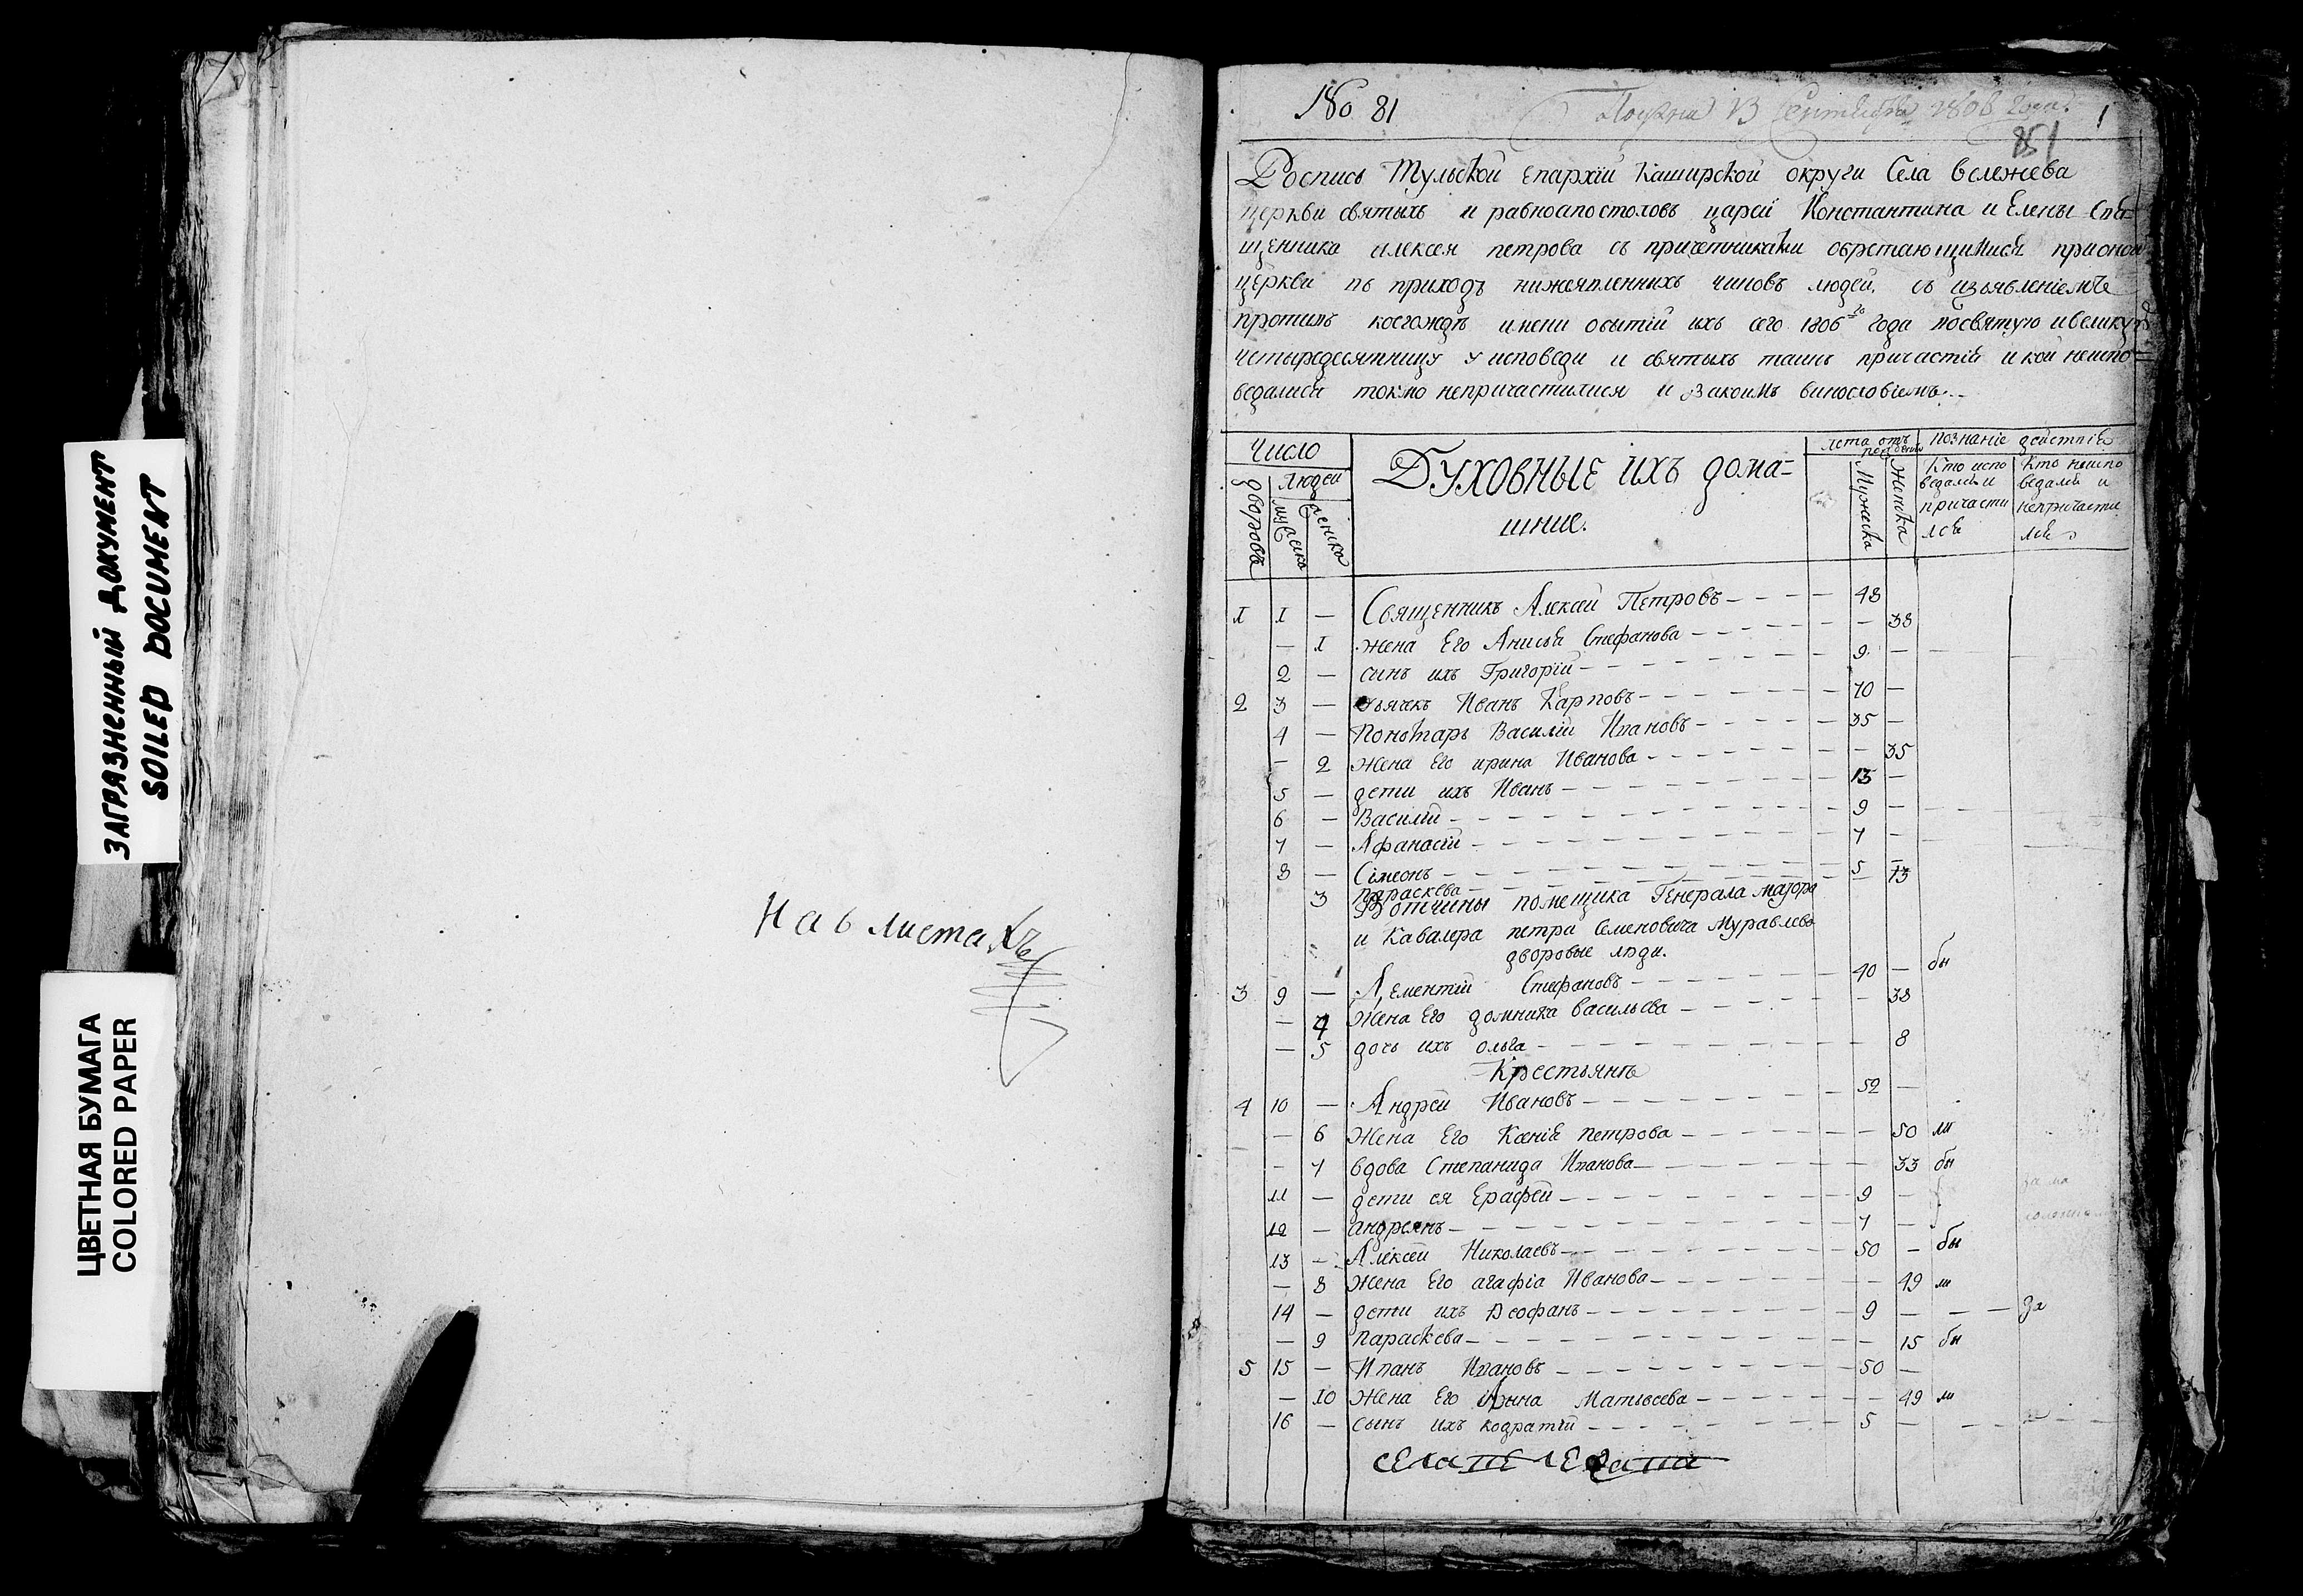 ЗАГРЯЗНЕННЫЙ ДОКУМЕНТ
SOILED DOCUMENT
ЦВЕТНАЯ БУМАГА
COLORED PAPER
На 6 листахъ
No 81
Сентября 1806 года 1
851
Роспись Тульской Епархїи Каширской округи Села вележева
церкви святыхъ и равноапостоловъ царей Константина и Елены Свя=
щенника алексея петрова съ причетниками обретающимися прионой
церкви въ приходѣ нижеявленныхъ чиновъ людей. съ изъявленіемъ
противъ коегождо имени обытіи ихъ сего 1806го года восвятую ивеликую
четыредесятницу у исповеди и святыхъ таинъ причастія и кои неиспо=
ведалися токмо непричастилися и закоимъ винословіемъ.
Число
лета отъ рождения
познаніе действія
дворовъ
людей
мужеска
женска
Духовные ихъ дома=
шние.
Мужеска
Женска
Кто испо
ведался и
причасти
лся
Кто неиспо
ведался и
непричасти
лся
1 1 — Священникъ Алексей Петровъ — 48
— 1 жена Его Анисья Стефанова — 38
2 — сынъ ихъ Григорій — 9 —
2 3 — дьячекъ Иванъ Карповъ — 70 —
4 — Пономарь Василій Ивановъ — 35 —
— 2 жена Его ирина Иванова — 35
5 — дети ихъ Иванъ — 13 —
6 — Василій — 9 —
7 — Афанасій — 7 —
8 — Сімеонъ — 5 —
3 параскева — 13
Вотчины помещика Генерала маіора
и Кавалера петра Семеновича Муравлева
дворовые люди.
3 9 — Стефановъ — 40 — бы
— 4 Жена Его домника васильева — 38
— 5 дочь ихъ ольга — 8
Крестьяне
4 10 — Андрей Ивановъ — 52 —
— 6 Жена Его Ксенія петрова — 50 ли
— 7 вдова Степанида Иванова — 33 бы
11 — дети ея Ерафей — 9 —
12 — андреянъ — 7 —
13 — Алексей Николаевъ — 50 — бы
— 8 Жена Его агафіа Иванова — 49 ли
14 — дети ихъ Феофанъ — 9 — — за
— 9 параскева — 15 бы
5 15 — Иванъ Ивановъ — 50 —
— 10 Жена Его Анна Матвеева — 49 ли
16 — сынъ ихъ кодратій — 5 —
села вележева